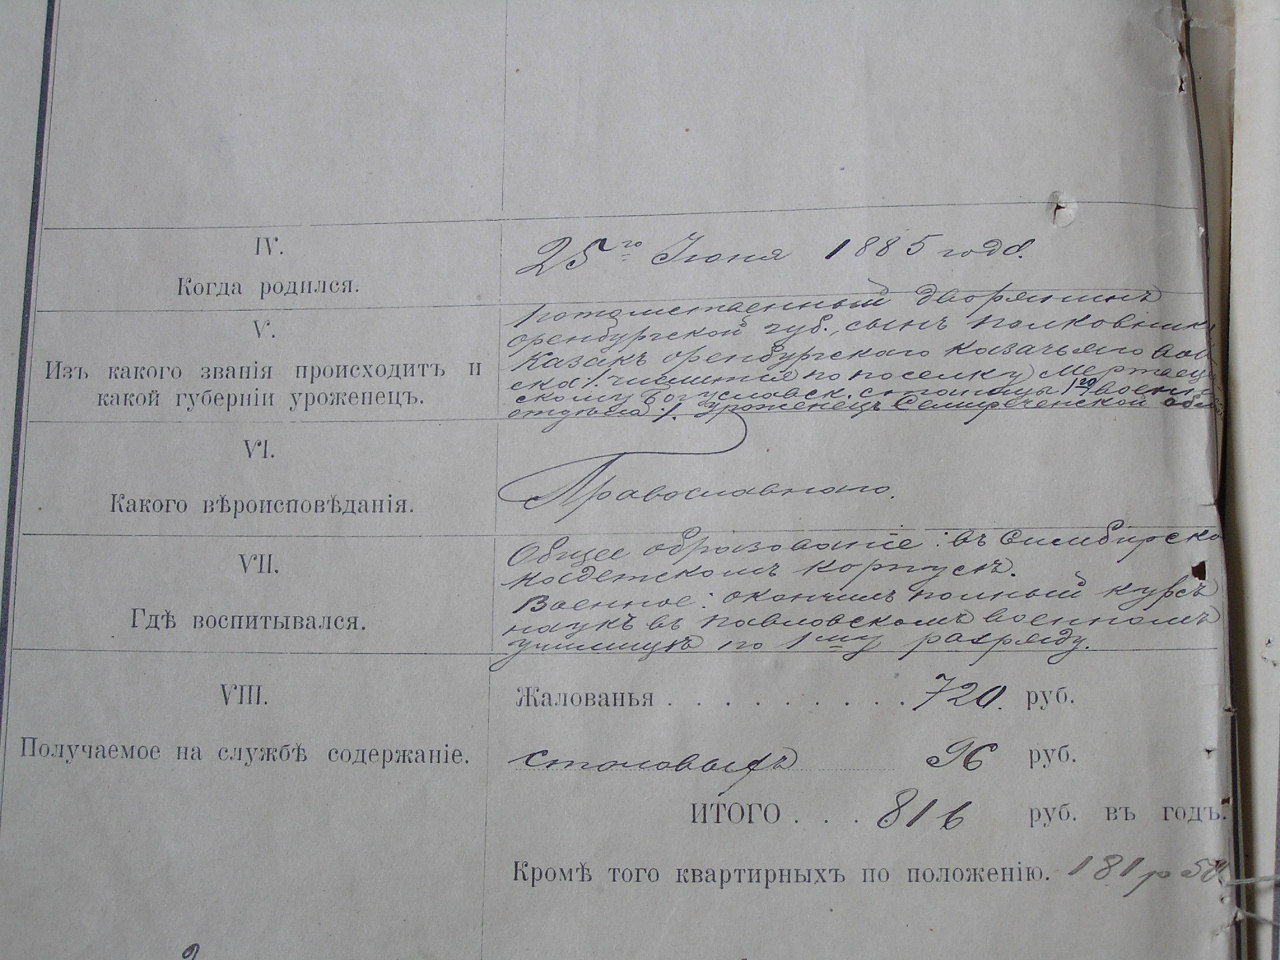 IV.
Когда родился.
25го Іюня 1885 года.
V.
Изъ какого званія происходитъ и
какой губерніи уроженецъ.
Потомственный дворянинъ
Оренбургской губ., сынъ Полковника
Казакъ Оренбургскаго казачьяго вой
ска /. числится по поселку Мертвецо
скому Богуславск. станицы 1го военн
отдѣла /. Уроженецъ Семирѣченской обл
VI.
Какого вѣроисповѣданія.
Православнаго.
VII.
Гдѣ воспитывался.
Общее образованіе: въ Симбирско
кадетскомъ корпусѣ.
Военное: окончилъ полный курсъ
наукъ въ Павловскомъ военномъ
училищѣ по 1му разряду.
VIII.
Получаемое на службѣ содержаніе.
Жалованья . . . . . . . . . 720. руб.
столовыхъ 96 руб.
ИТОГО . . . 816 руб. въ годъ.
Кромѣ того квартирныхъ по положенію. 181 р 50